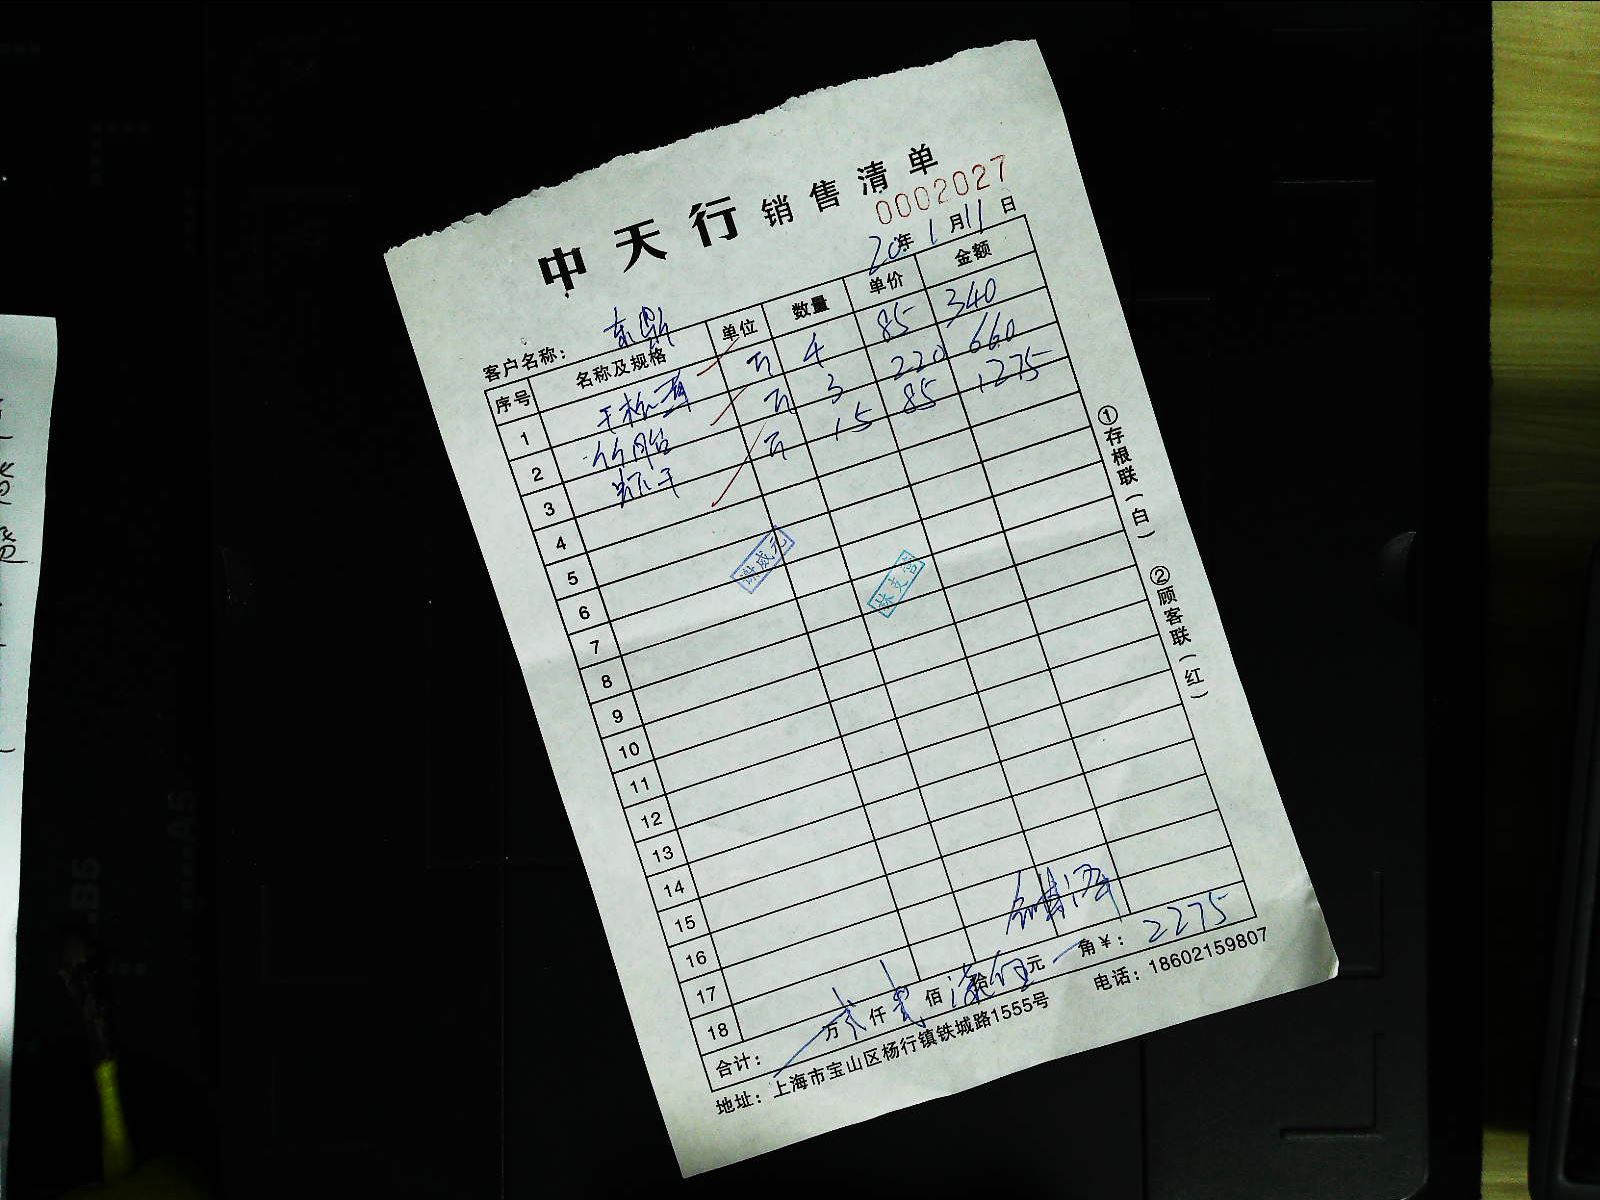 中天行销售清单
0002027
20年1月11日
客户名称：东
序号 名称及规格 单位 数量 单价 金额
1 斤 4 85 340
2 斤 3 220 660
3 斤 15 85 1275
4
5
6
7
8
9
10
11
12
13
14
15
16
17
18
合计： 万 仟 佰 拾 元 角￥：2275
地址：上海市宝山区杨行镇铁城路1555号 电话：18602159807
①存根联(白) ②顾客联(红)
谢成元
B5
A5